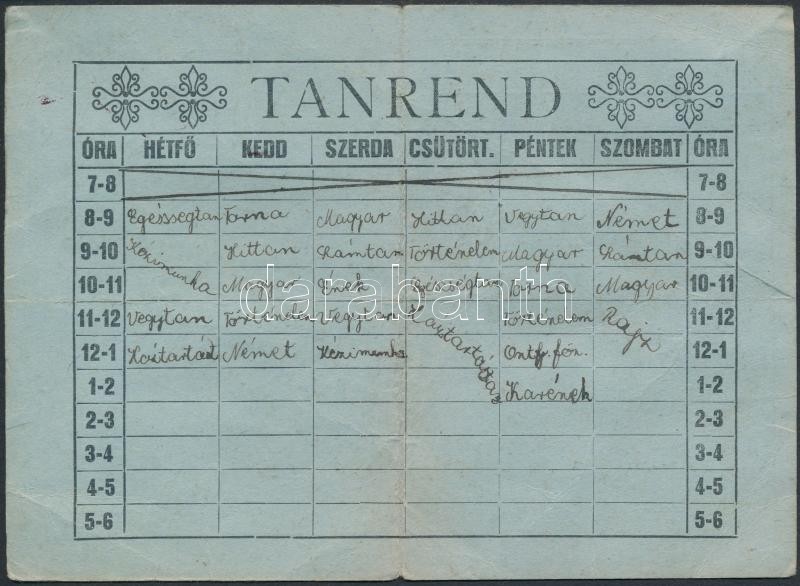 TANREND
ÓRA HÉTFŐ KEDD SZERDA CSÜTÖRT. PÉNTEK SZOMBAT ÓRA
7-8 7-8
8-9 Egésségtan Torna Magyar Hittan Vegytan Német 8-9
9-10 Kézimunka Hittan Számtan Történelem Magyar Számtan 9-10
10-11 Magyar Ének Egésségtan Torna Magyar 10-11
11-12 Vegytan Történelem Vegytan Háztartástan Történelem Rajz 11-12
12-1 Háztartást Német Kézimunka 12-1
1-2 Karének 1-2
2-3 2-3
3-4 3-4
4-5 4-5
5-6 5-6
darabanth